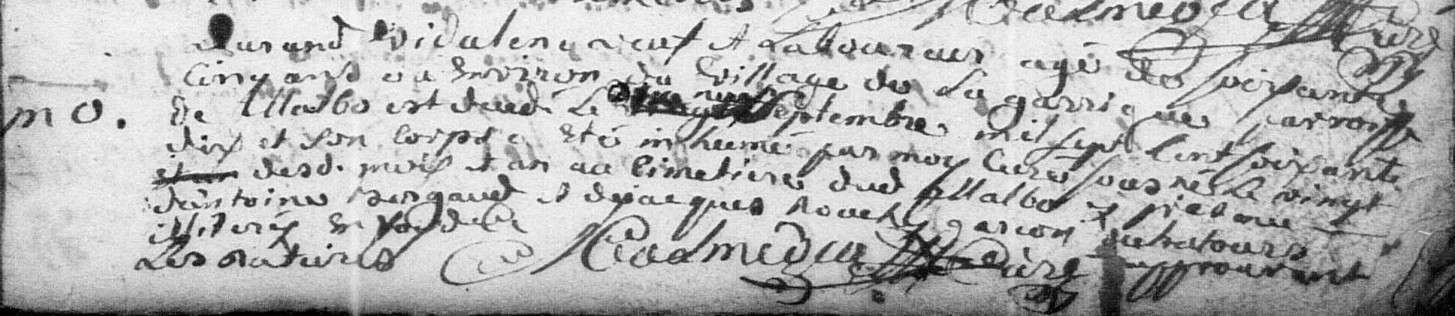 Durand Vidalenq veuf et Laboureur agé de soixante
Cinq ans ou environ du village de La garrigue parroisse
mo. de Malbo est decedé Le septembre mil sept Cent soixante
dix et son corps a Eté inhumé par moy Curé soussné Le vingt
desd. mois et an au Cimetiere dud Malbo presence
d'antoine et de jacques garçon
illiterés En foy de ce
Les ratures approuvant
Curé